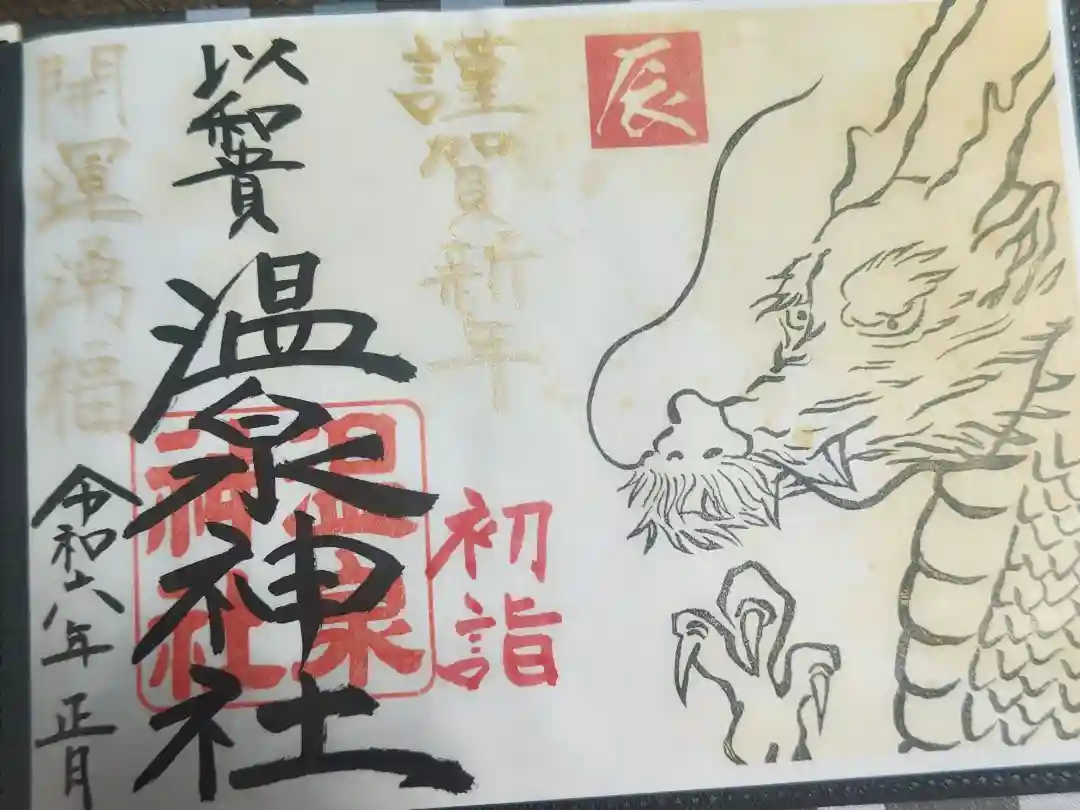 辰
謹賀新年
初詣
以和為貴
温泉神社
温泉
神社
開運湧福
令和六年 正月